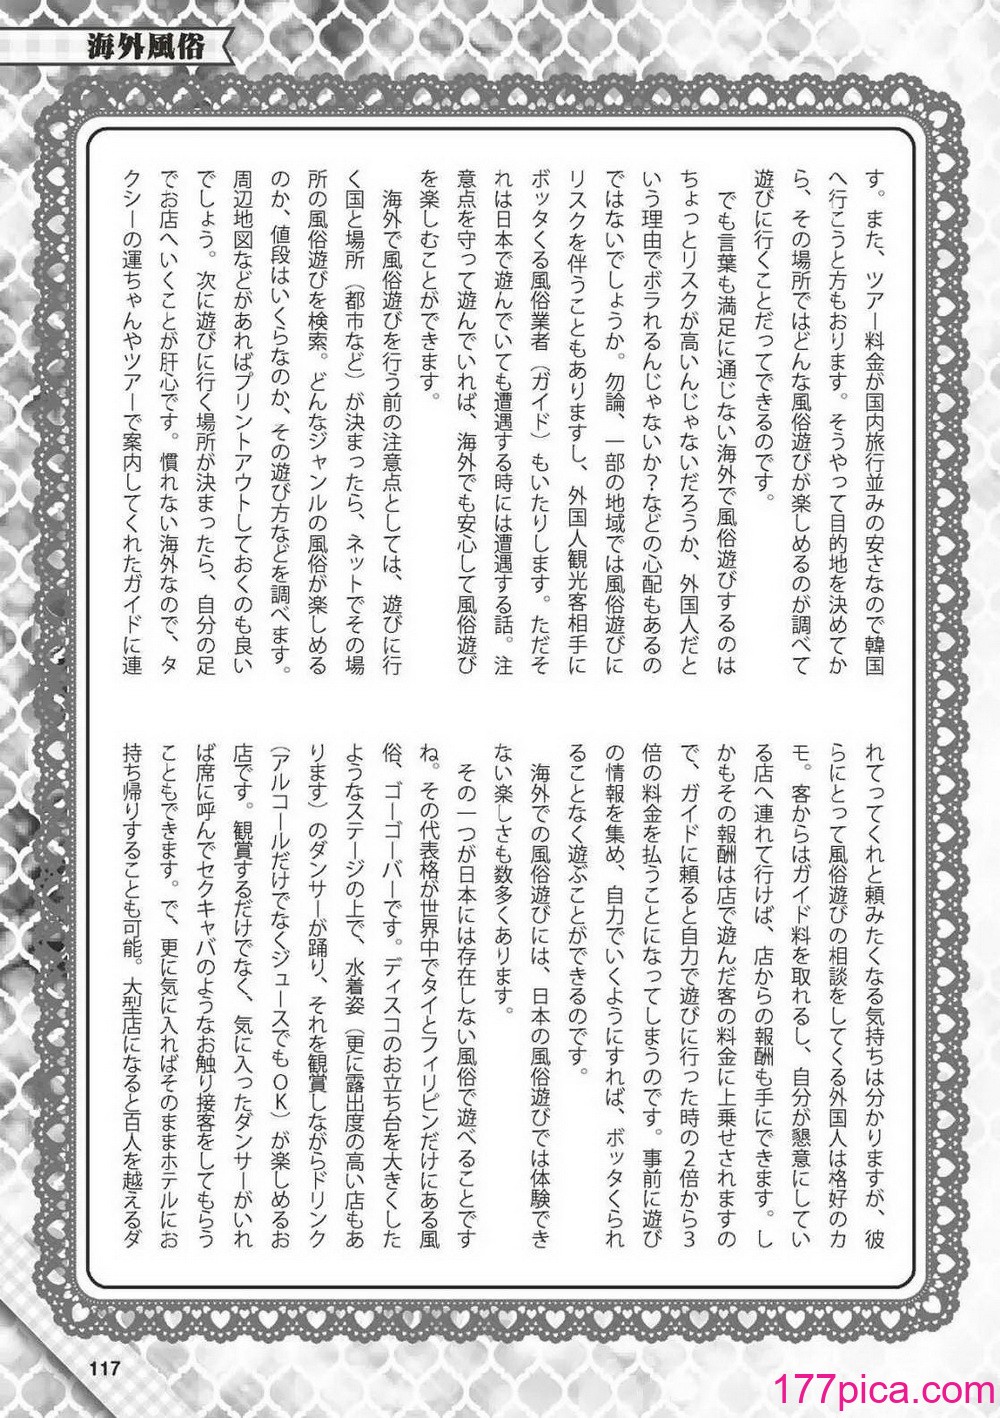 海外風俗
す。また、ツアー料金が国内旅行並みの安さなので韓国
へ行こうと方もおります。そうやって目的地を決めてか
ら、その場所ではどんな風俗遊びが楽しめるのが調べて
遊びに行くことだってできるのです。
でも言葉も満足に通じない海外で風俗遊びするのは
ちょっとリスクが高いんじゃないだろうか、外国人だと
いう理由でボラれるんじゃないか?などの心配もあるの
ではないでしょうか。勿論、一部の地域では風俗遊びに
リスクを伴うこともありますし、外国人観光客相手に
ボッタくる風俗業者（ガイド）もいたりします。ただそ
れは日本で遊んでいても遭遇する時には遭遇する話。注
意点を守って遊んでいれば、海外でも安心して風俗遊び
を楽しむことができます。
海外で風俗遊びを行う前の注意点としては、遊びに行
く国と場所（都市など）が決まったら、ネットでその場
所の風俗遊びを検索。どんなジャンルの風俗が楽しめる
のか、値段はいくらなのか、その遊び方などを調べます。
周辺地図などがあればプリントアウトしておくのも良い
でしょう。次に遊びに行く場所が決まったら、自分の足
でお店へいくことが肝心です。慣れない海外なので、タ
クシーの運ちゃんやツアーで案内してくれたガイドに連
れてってくれと頼みたくなる気持ちは分かりますが、彼
らにとって風俗遊びの相談をしてくる外国人は格好のカ
モ。客からはガイド料を取れるし、自分が懇意にしてい
る店へ連れて行けば、店からの報酬も手にできます。し
かもその報酬は店で遊んだ客の料金に上乗せされますの
で、ガイドに頼ると自力で遊びに行った時の2倍から3
倍の料金を払うことになってしまうのです。事前に遊び
の情報を集め、自力でいくようにすれば、ボッタくられ
ることなく遊ぶことができるのです。
海外での風俗遊びには、日本の風俗遊びでは体験でき
ない楽しさも数多くあります。
その一つが日本には存在しない風俗で遊べることです
ね。その代表格が世界中でタイとフィリピンだけにある風
俗、ゴーゴーバーです。ディスコのお立ち台を大きくした
ようなステージの上で、水着姿（更に露出度の高い店もあ
ります）のダンサーが踊り、それを観賞しながらドリンク
（アルコールだけでなくジュースでもOK）が楽しめるお
店です。観賞するだけでなく、気に入ったダンサーがいれ
ば席に呼んでセクキャバのようなお触り接客をしてもらう
こともできます。で、更に気に入ればそのままホテルにお
持ち帰りすることも可能。大型店になると百人を越えるダ
117
177pica.com